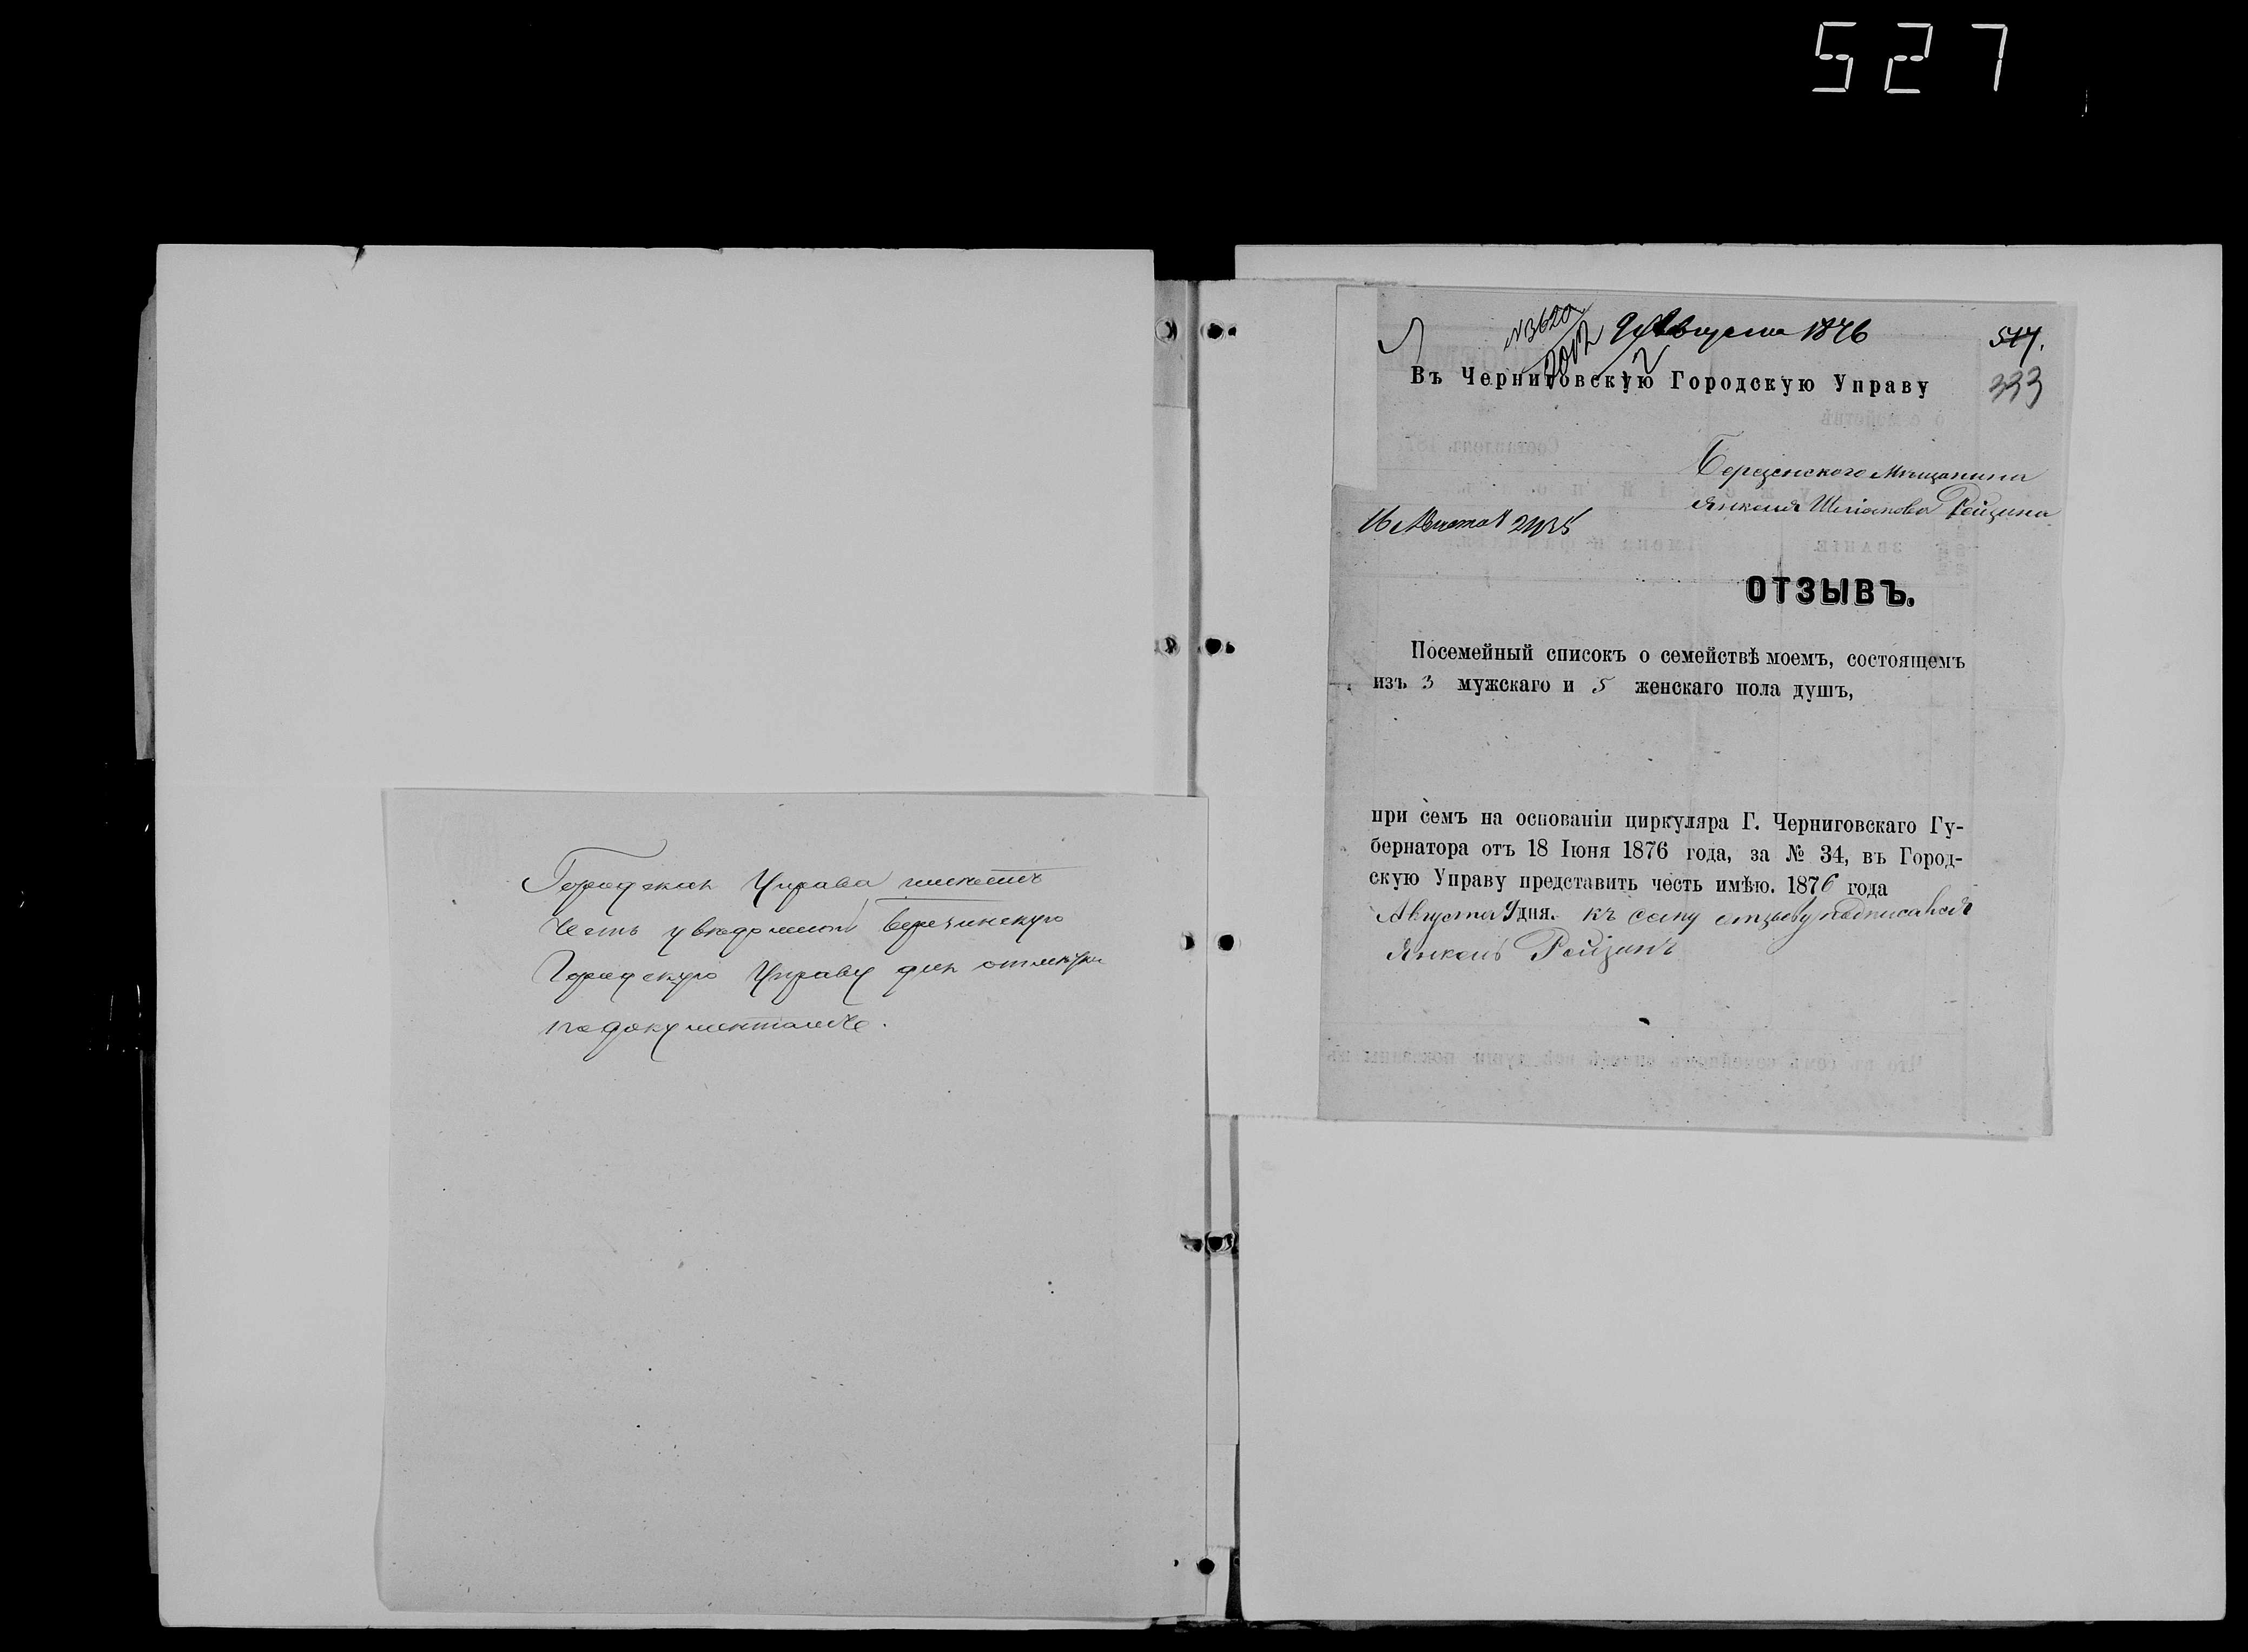 527
Городская Управа имѣетъ
честь увѣдомить Березинскую
Городскую Управу для отмѣтки
по документамъ.
№3620
9 Августа 1876
517.
Въ Черниговскую Городскую Управу
333
Березенского Мѣщанина
Янкеля Шліомова Рейзина
16 Августа
ОТЗЫВЪ.
Посемейный списокъ о семействѣ моемъ, состоящемъ
изъ 3 мужскаго и 5 женскаго пола душъ,
при семъ на основаніи циркуляра Г. Черниговскаго Гу-
бернатора отъ 18 Іюня 1876 года, за № 34, въ Город-
скую Управу представить честь имѣю. 1876 года
Августа 9 дня. къ сему отзыву подписался
Янкель Рейзинъ